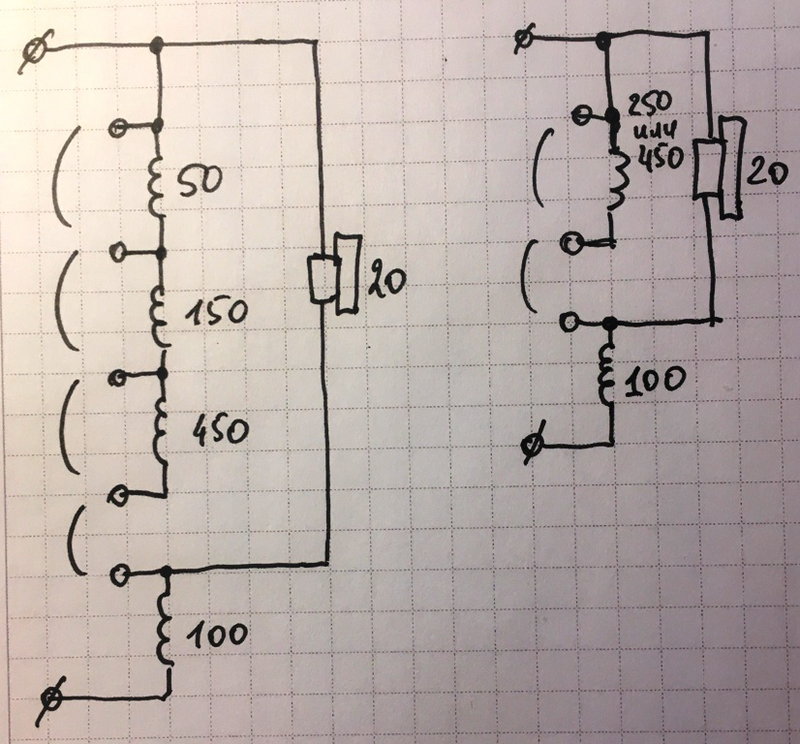 50
150
450
20
100
250
или
450
20
100